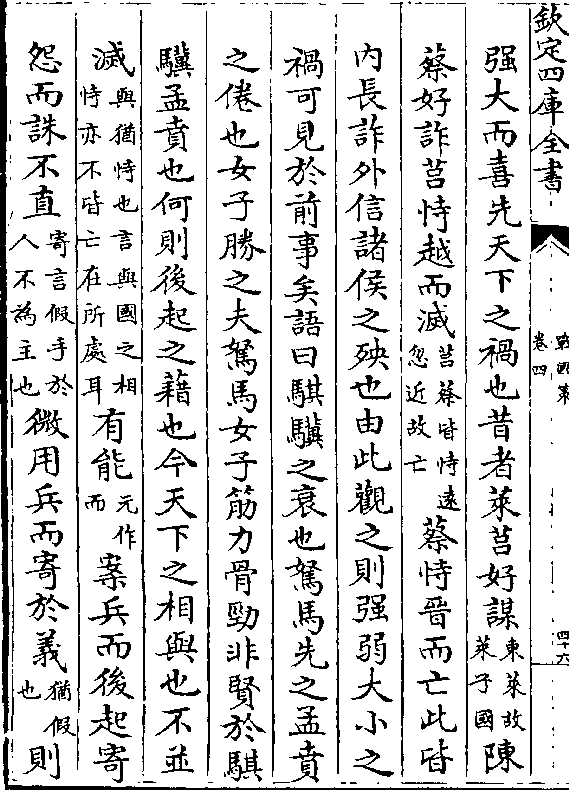 欽定四庫全書
戰國策
卷四
四十六
强大而喜先天下之禍也昔者萊莒好謀東萊故萊子國陳
蔡好詐莒恃越而滅莒蔡皆恃遠忽近故亡蔡恃晉而亡此皆
内長詐外信諸侯之殃也由此觀之則强弱大小之
禍可見於前事矣語曰騏驥之衰也駑馬先之孟賁
之倦也女子勝之夫駑馬女子筋力骨勁非賢於騏
驥孟賁也何則後起之藉也今天下之相與也不並
滅與猶恃也言與國之相恃亦不皆亡在所處耳有能元作而案兵而後起寄
怨而誅不直寄言假手於人不為主也微用兵而寄於義猶假也則